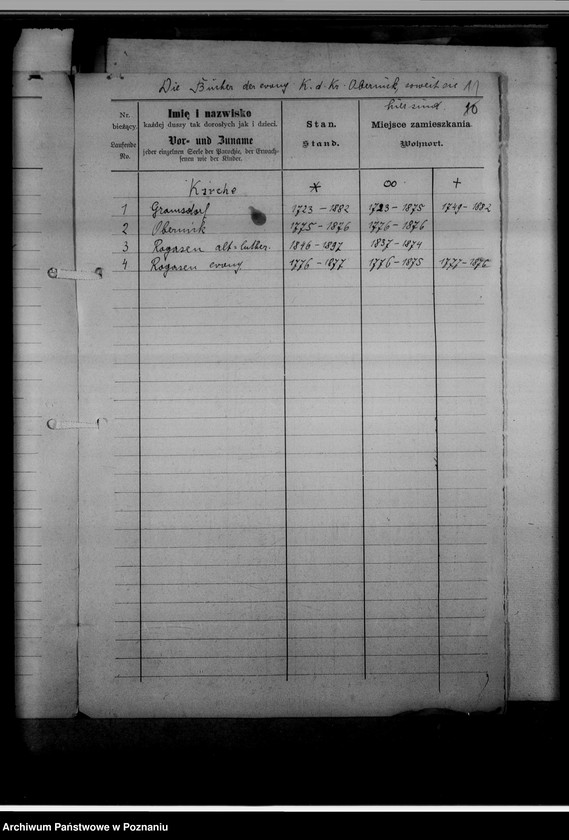 Die Bücher der evang K. d. Kr. Obernik, soweit sie
hier sind
Nr. bieżący.
Laufende No.
Imię i nazwisko
każdej duszy tak dorosłych jak i dzieci.
Vor- und Zuname
jeder einzelnen Seele der Parochie, der Erwach-
senen wie der Kinder.
Stan.
Stand.
Miejsce zamieszkania
Wohnort.
Kirche * ∞ +
1 Gramsdorf 1723 – 1882 1723 – 1875
2 Obernik 1775 – 1876 1776 – 1876
3 Rogasen alt-luther. 1837 – 1874
4 Rogasen evang 1776 – 1877 1776 – 1875
Archiwum Państwowe w Poznaniu